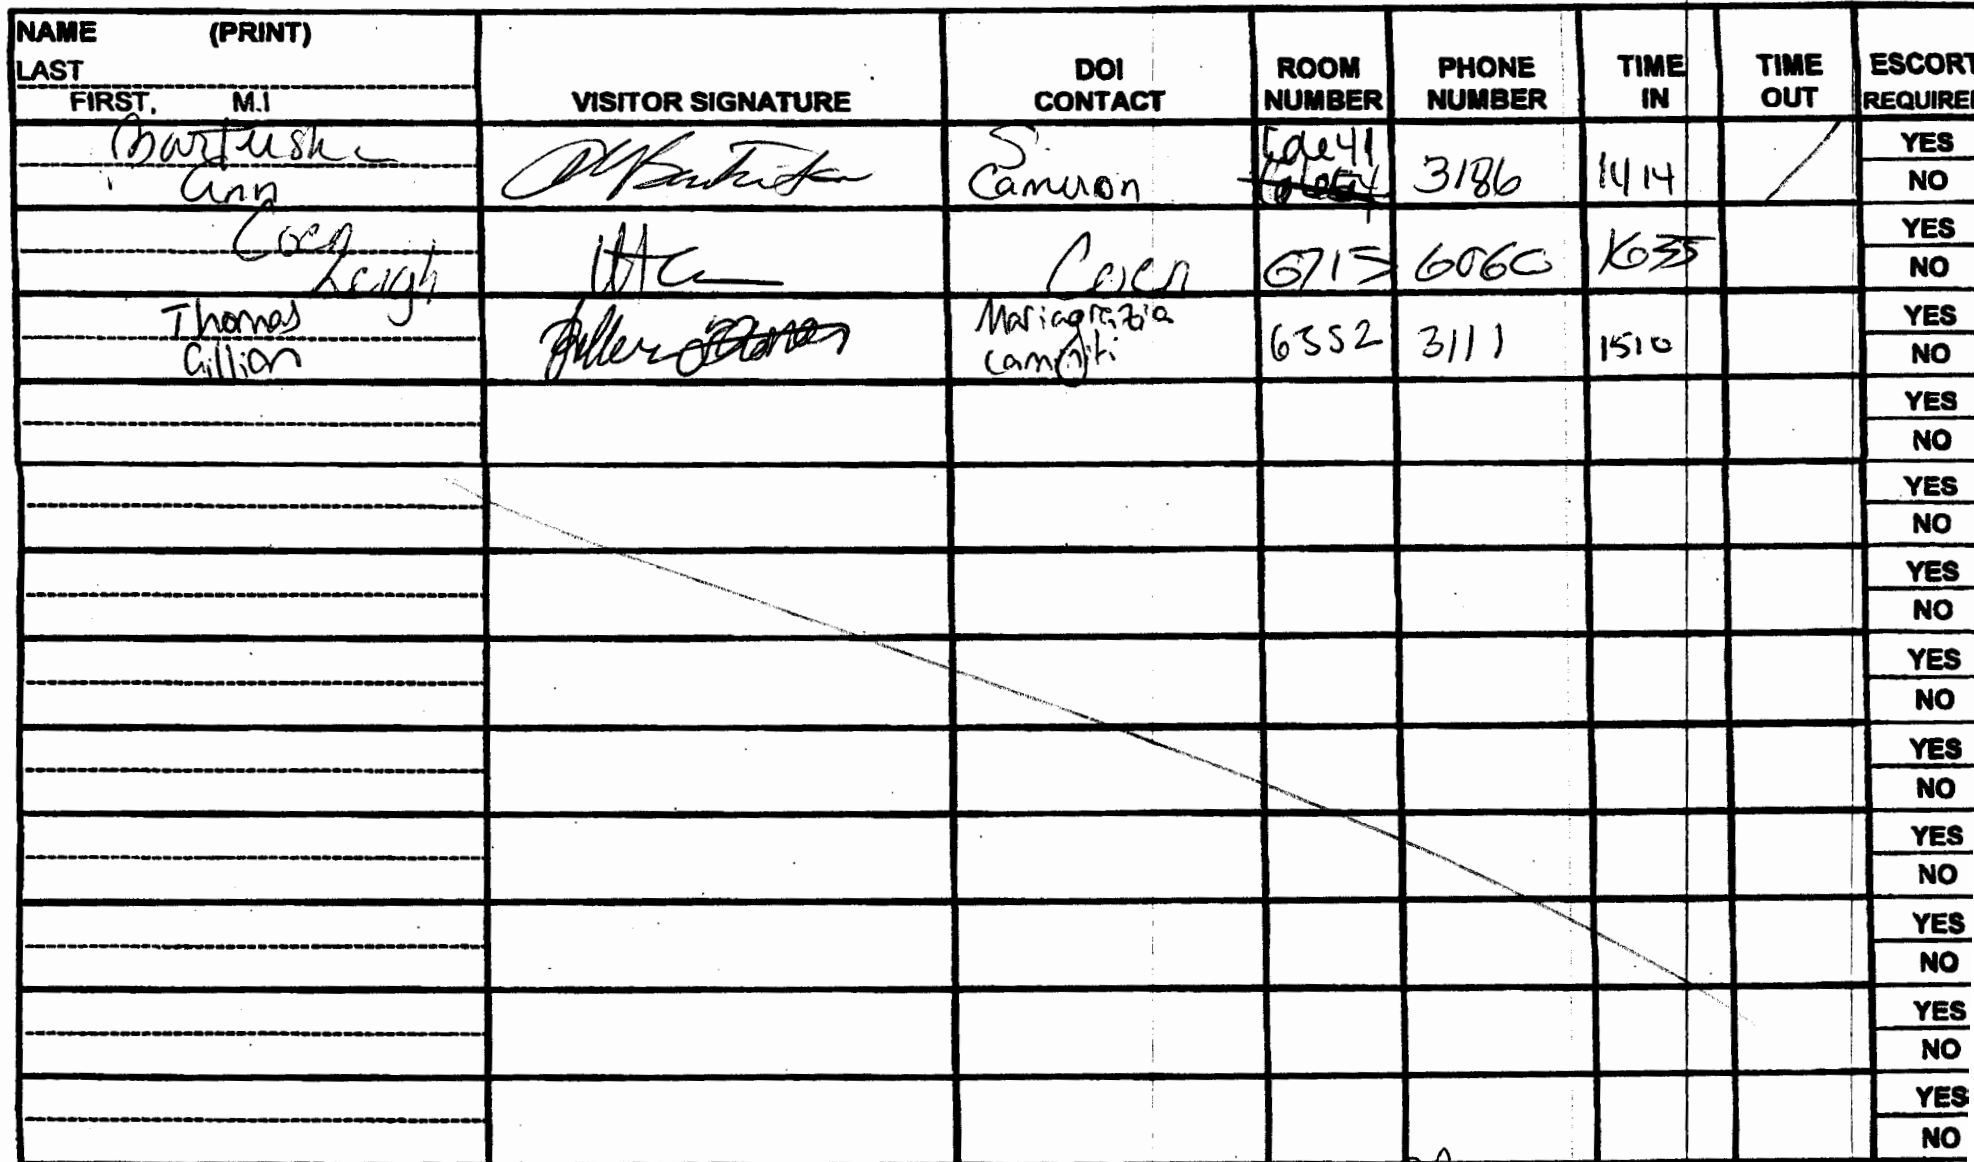 NAME (PRINT)
LAST
FIRST, M.I
VISITOR SIGNATURE
DOI CONTACT
ROOM NUMBER
PHONE NUMBER
TIME IN
TIME OUT
ESCORT REQUIRED
Bartuska
Ann
S. Cameron
3186
1414
YES
NO
Coen
Leigh
Coen
6715
6060
YES
NO
Thomas
Gillian
Mariagrazia
Caminiti
6352
3111
1510
YES
NO
YES
NO
YES
NO
YES
NO
YES
NO
YES
NO
YES
NO
YES
NO
YES
NO
YES
NO